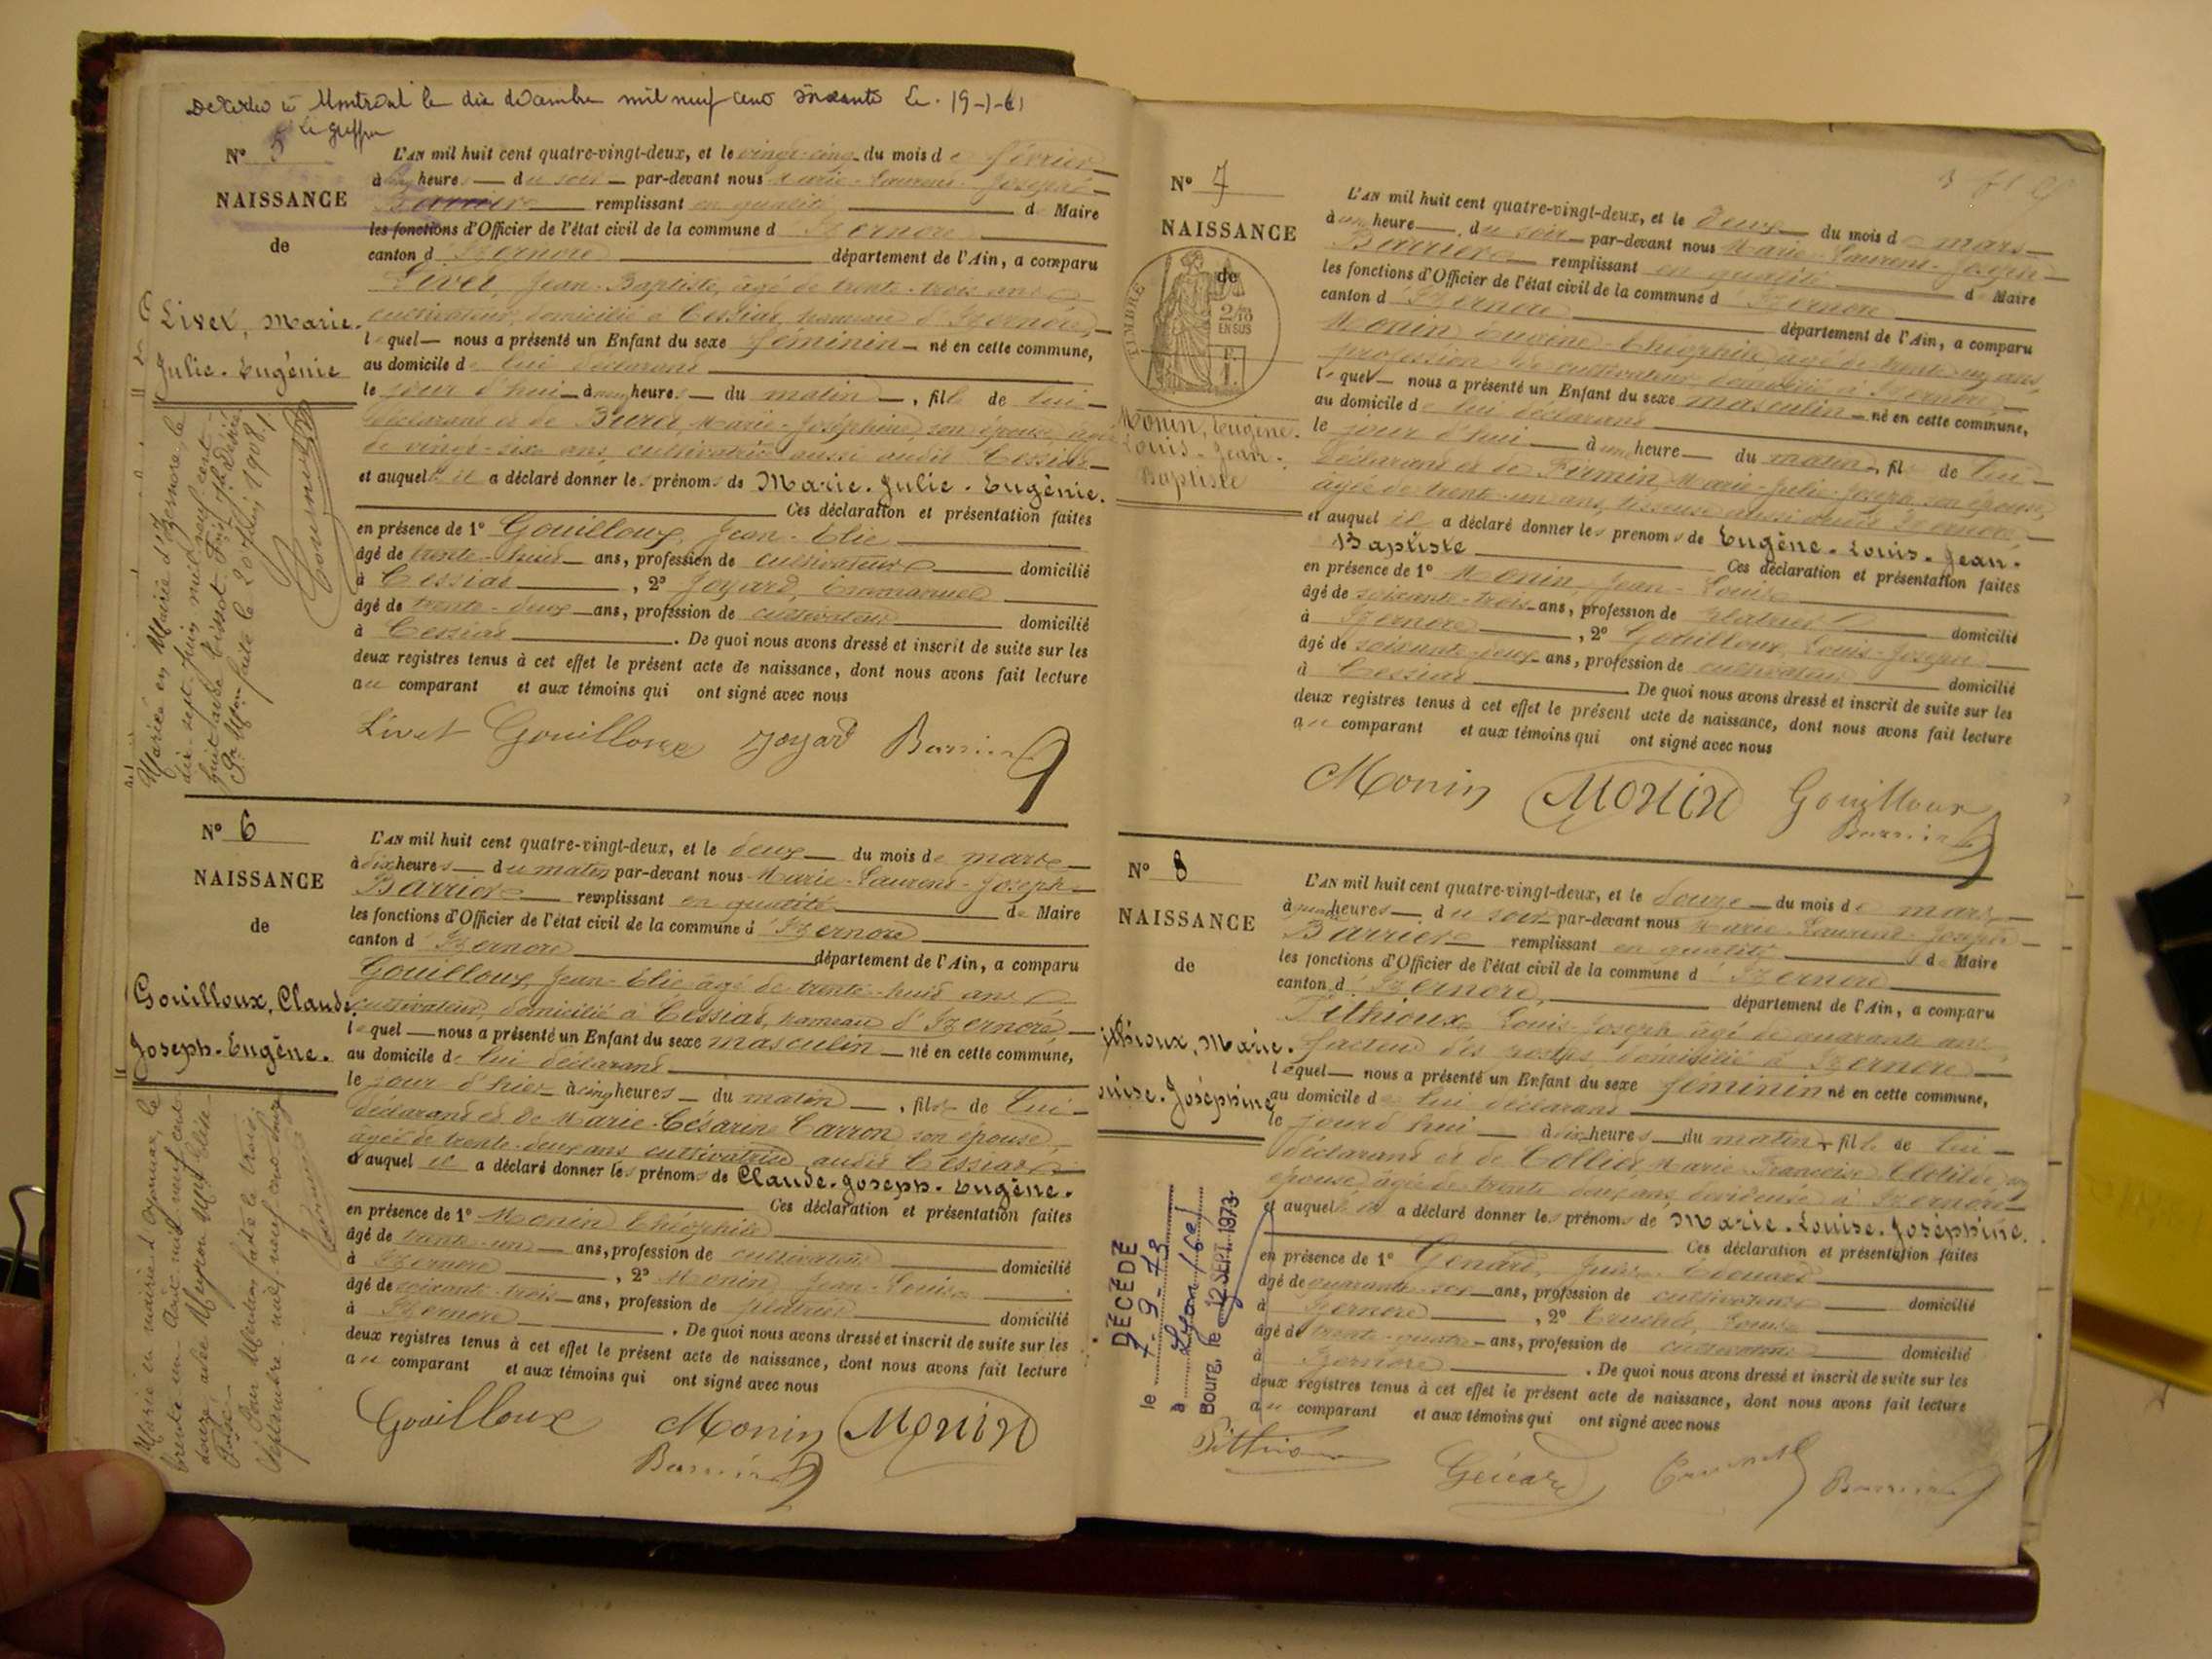 Décédée à Montréal le dix décembre mil neuf cent soixante Le 19-1-61
Le greffier
N° 5
NAISSANCE
de
Livet, Marie-
Julie-Eugénie
Mariée en Mairie d'Izernore, le
dix sept juin mil neuf cent
huit avec
Pr Mention faite le 20 Juin 1908
L'AN mil huit cent quatre-vingt-deux, et le vingt-cinq du mois de février
à cinq heures du soir par-devant nous Marie-Laurent-Joseph
Barrier remplissant en qualité de Maire
les fonctions d'Officier de l'état civil de la commune d'Izernore
canton d'Izernore département de l'Ain, a comparu
Livet, Jean-Baptiste, âgé de trente-trois ans
cultivateur, domicilié à Cessiat, hameau d'Izernore,
lequel nous a présenté un Enfant du sexe féminin né en cette commune,
au domicile de lui déclarant
le jour d'hui à heures du matin, fille de lui
déclarant et de Marie-Joséphine, son épouse, âgée
de vingt-six ans, cultivatrice aussi audit Cessiat
et auquel il a déclaré donner les prénoms de Marie-Julie-Eugénie.
Ces déclaration et présentation faites
en présence de 1° Gouilloux, Jean-Elie
âgé de trente-huit ans, profession de cultivateur domicilié
à Cessiat, 2° Joyard, Emmanuel
âgé de trente-deux ans, profession de cultivateur domicilié
à Cessiat. De quoi nous avons dressé et inscrit de suite sur les
deux registres tenus à cet effet le présent acte de naissance, dont nous avons fait lecture
au comparant et aux témoins qui ont signé avec nous
Livet Gouilloux Joyard Barrier
N° 6
NAISSANCE
de
Gouilloux, Claude-
Joseph-Eugène.
Marié en mairie d'Oyonnax, le
trente un Août mil neuf cent
douze, avec
Pour Mention faite le trois
Septembre mil neuf cent douze
L'AN mil huit cent quatre-vingt-deux, et le deux du mois de mars
à dix heures du matin par-devant nous Marie-Laurent-Joseph
Barrier remplissant en qualité de Maire
les fonctions d'Officier de l'état civil de la commune d'Izernore
canton d'Izernore département de l'Ain, a comparu
Gouilloux, Jean-Elie âgé de trente-huit ans
cultivateur, domicilié à Cessiat, hameau d'Izernore,
lequel nous a présenté un Enfant du sexe masculin né en cette commune,
au domicile de lui déclarant
le jour d'hier à cinq heures du matin, fils de lui
déclarant et de Marie-Césarine Carron son épouse
âgée de trente-deux ans cultivatrice audit Cessiat
et auquel il a déclaré donner les prénoms de Claude-Joseph-Eugène.
Ces déclaration et présentation faites
en présence de 1° Monin Théophile
âgé de trente-un ans, profession de cultivateur
à Izernore domicilié
, 2° Monin, Jean-Louis
âgé de soixante-trois ans, profession de plâtrier
à Izernore domicilié
. De quoi nous avons dressé et inscrit de suite sur les
deux registres tenus à cet effet le présent acte de naissance, dont nous avons fait lecture
au comparant et aux témoins qui ont signé avec nous
Gouilloux Monin Monin
Barrier
N° 7
NAISSANCE
de
TIMBRE
2/10
EN SUS
Monin, Eugène-
Louis-Jean-
Baptiste
L'AN mil huit cent quatre-vingt-deux, et le deux du mois de mars
à une heure du soir par-devant nous Marie-Laurent-Joseph
Barrier remplissant en qualité de Maire
les fonctions d'Officier de l'état civil de la commune d'Izernore
canton d'Izernore département de l'Ain, a comparu
Monin Eugène-Théophile âgé de trente-un ans
profession de cultivateur, domicilié à Izernore,
lequel nous a présenté un Enfant du sexe masculin né en cette commune,
au domicile de lui déclarant
le jour d'hui à une heure du matin, fils de lui
déclarant et de Firmin, Marie-Julie-Joseph son épouse,
âgée de trente-un ans, tisseuse aussi audit Izernore
et auquel il a déclaré donner les prénoms de Eugène-Louis-Jean-
Baptiste Ces déclaration et présentation faites
en présence de 1° Monin, Jean-Louis
âgé de soixante-trois ans, profession de plâtrier
à Izernore domicilié
, 2° Gouilloux, Louis-Joseph
âgé de soixante-deux ans, profession de cultivateur
à Cessiat domicilié
. De quoi nous avons dressé et inscrit de suite sur les
deux registres tenus à cet effet le présent acte de naissance, dont nous avons fait lecture
au comparant et aux témoins qui ont signé avec nous
Monin Monin Gouilloux
Barrier
N° 8
NAISSANCE
de
ithioux, Marie-
ouise-Joséphine
DÉCÉDÉ
le 7-9-73
à Lyon
Bourg, le 12 SEPT. 1973
L'AN mil huit cent quatre-vingt-deux, et le douze du mois de mars
à heures du soir par-devant nous Marie-Laurent-Joseph
Barrier remplissant en qualité de Maire
les fonctions d'Officier de l'état civil de la commune d'Izernore
canton d'Izernore, département de l'Ain, a comparu
Pithioux, Louis-Joseph âgé de quarante ans
facteur des postes, domicilié à Izernore
lequel nous a présenté un Enfant du sexe féminin né en cette commune,
au domicile de lui déclarant
le jour d'hui à six heures du matin, fille de lui
déclarant et de Collier Marie Françoise Clotilde son
épouse âgée de trente deux ans, dévideuse à Izernore
et auquel il a déclaré donner les prénoms de Marie-Louise-Joséphine.
Ces déclaration et présentation faites
en présence de 1° Genard, Edouard
âgé de quarante ans, profession de cultivateur
à Izernore domicilié
, 2° Louis
âgé de trente-quatre ans, profession de cultivateur
à Izernore domicilié
. De quoi nous avons dressé et inscrit de suite sur les
deux registres tenus à cet effet le présent acte de naissance, dont nous avons fait lecture
au comparant et aux témoins qui ont signé avec nous
Barrier